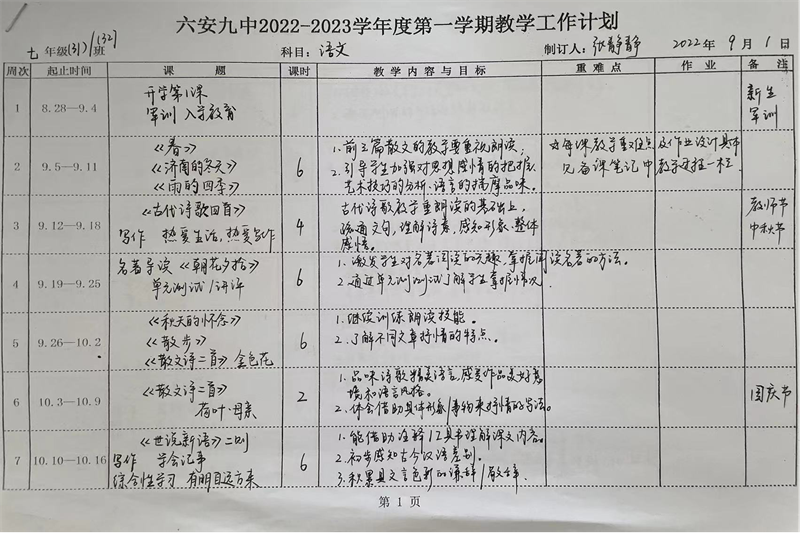 六安九中2022-2023学年度第一学期教学工作计划
七年级(31)/(32)班 科目：语文 制订人：张静静 2022年9月1日
周次 起止时间 课题 课时 教学内容与目标 重难点 作业 备注
1 8.28—9.4 开学第1课 新生
军训 入学教育 军训
2 9.5—9.11 《春》 6 1.前三篇散文的教学要重视朗读；
《济南的冬天》 2.引导学生加强对思想感情的把握、
《雨的四季》 艺术技巧的分析、语言的揣摩品味。
每课教学重难点及作业设计具体
见备课笔记中教学过程一栏
3 9.12—9.18 《古代诗歌四首》 4 古代诗歌教学重朗读的基础上，
写作 热爱生活，热爱写作 疏通文句，理解诗意，感知形象、整体
感情。
教师节
中秋节
4 9.19—9.25 名著导读《朝花夕拾》 6 1.激发学生对名著阅读的兴趣，掌握阅读名著的方法。
单元测试/讲评 2.通过单元测试了解学生掌握情况
5 9.26—10.2 《秋天的怀念》 6 1.继续训练朗读技能。
《散步》 2.了解不同文章抒情的特点。
《散文诗二首》金色花
6 10.3—10.9 《散文诗二首》 2 1.品味诗歌精美语言，感受作品美好意
荷叶·母亲 境和语言风格。
2.体会借助具体形象/事物来抒情的写法。
国庆节
7 10.10—10.16 《世说新语》二则 6 1.能借助注释/工具书理解课文内容。
写作 学会记事 2.初步感知古今汉语差别。
综合性学习 有朋自远方来 3.积累文言
第1页